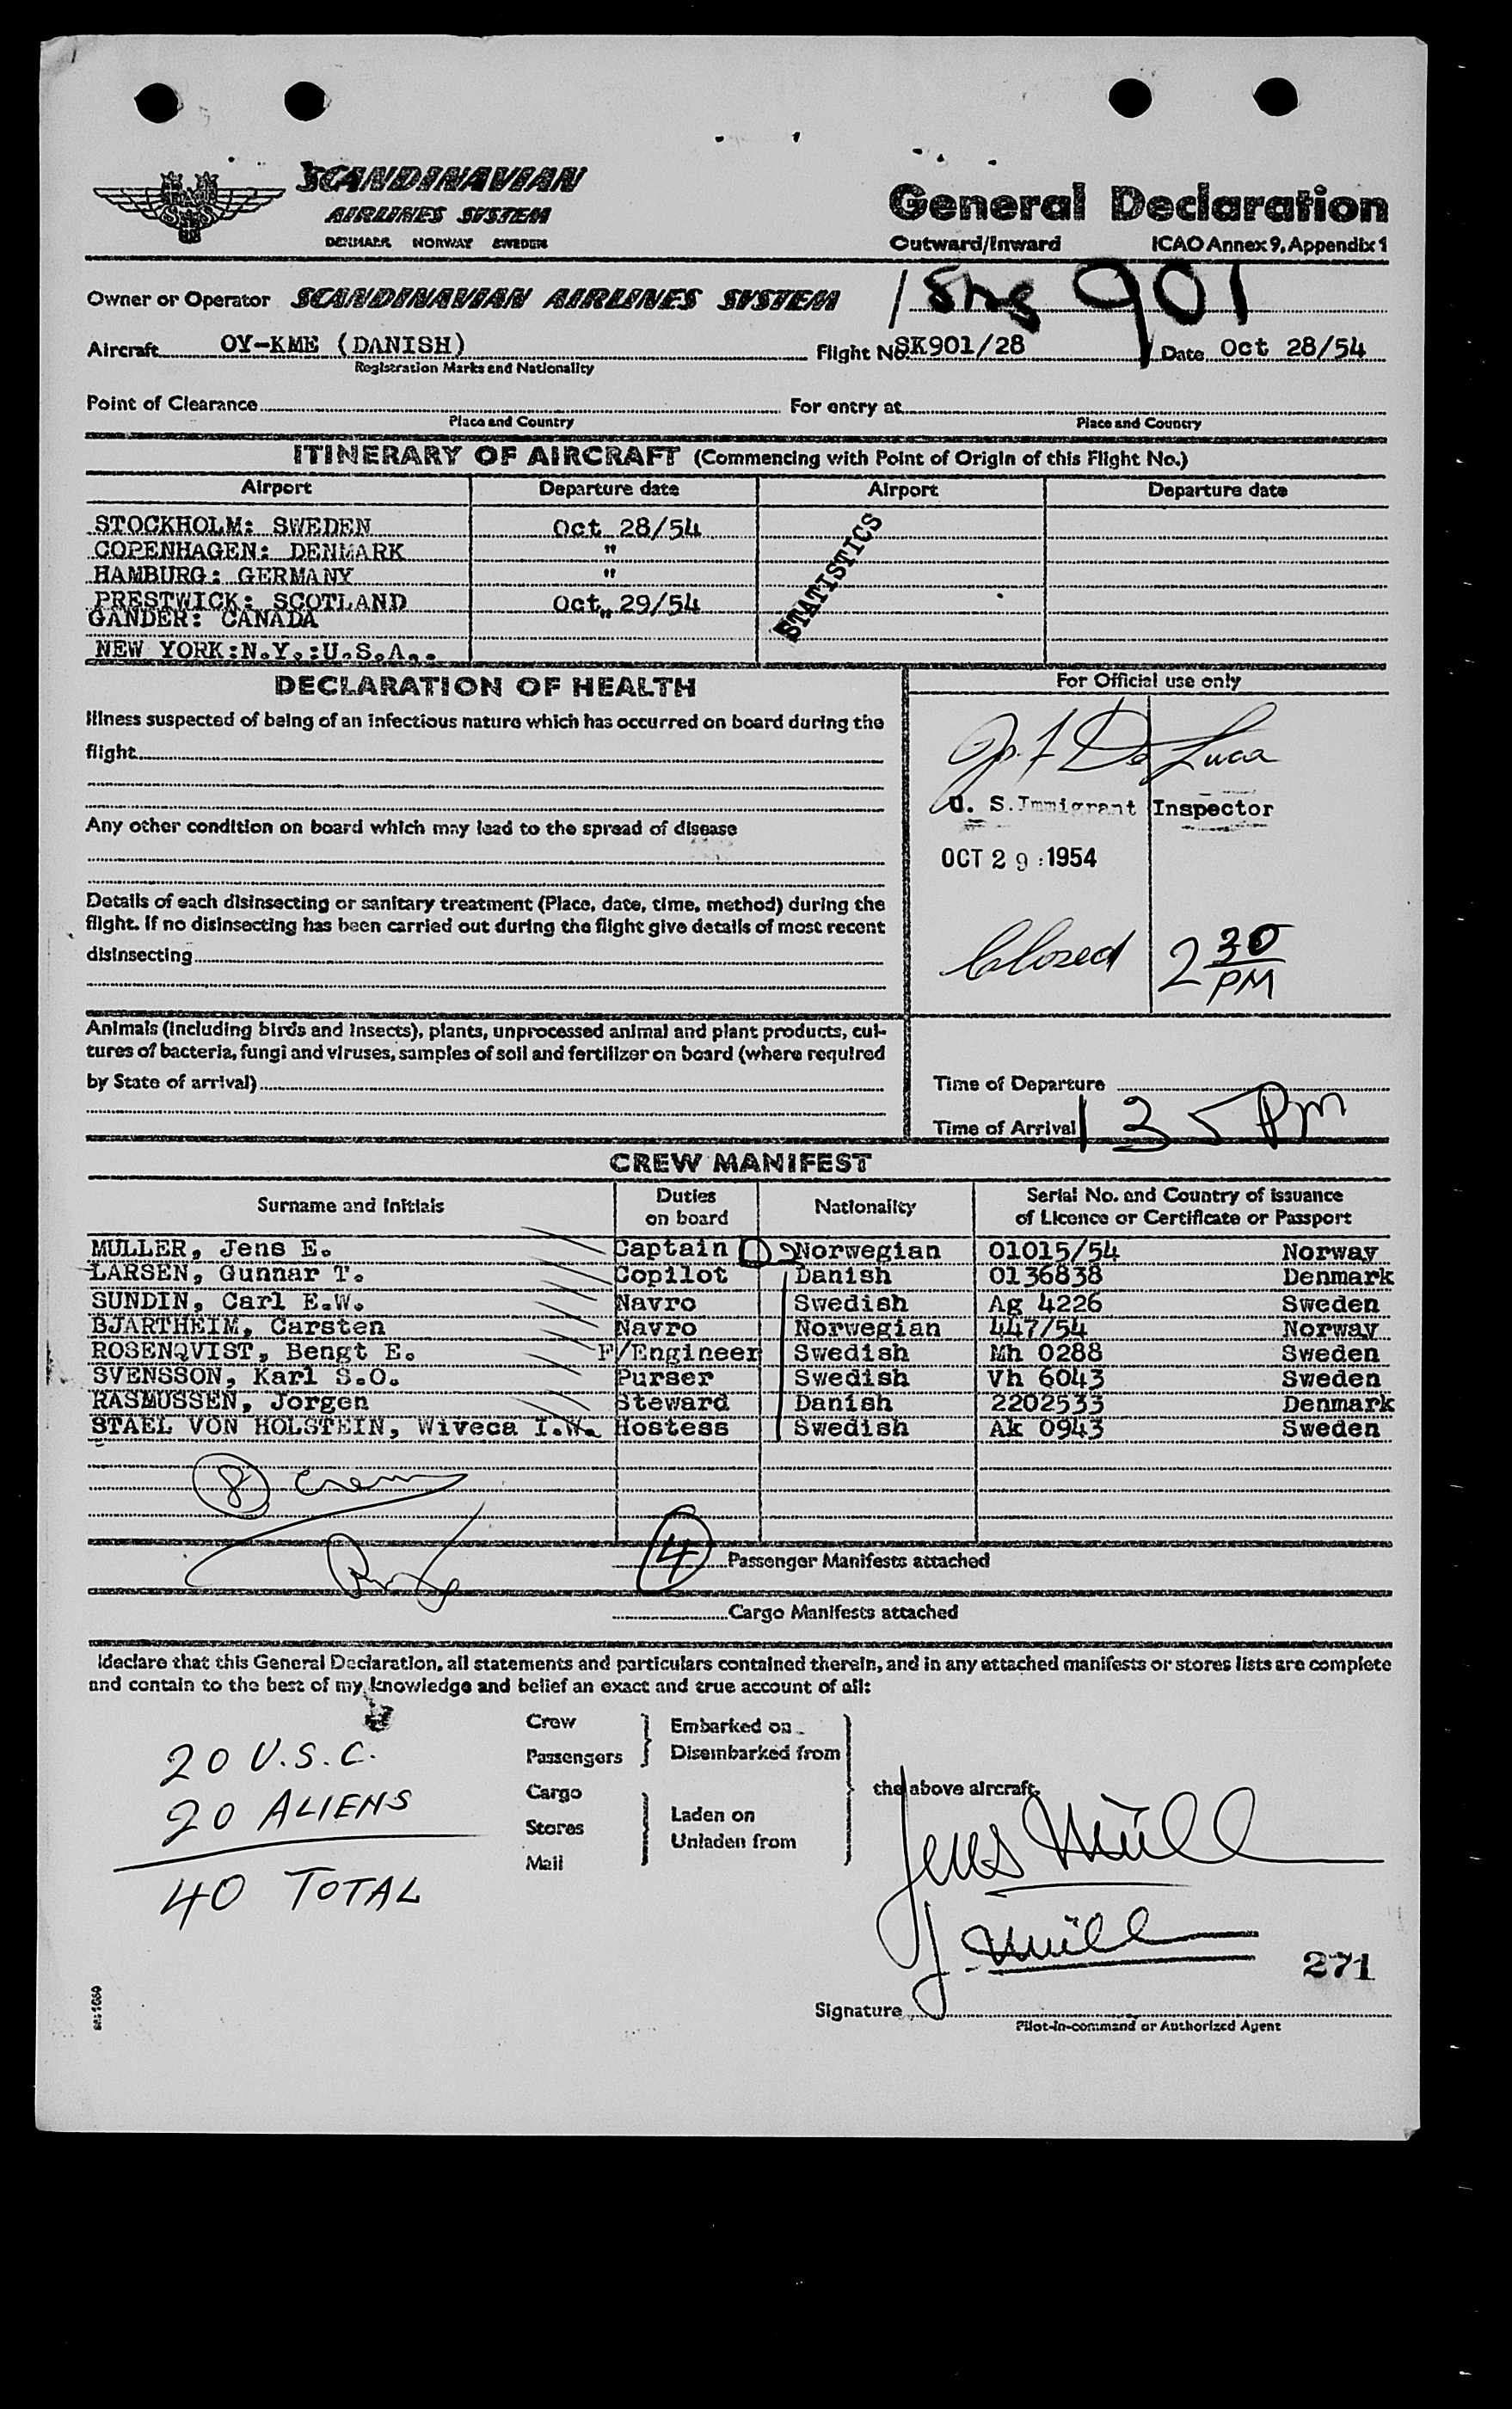 SCANDINAVIAN
AIRLINES SYSTEM
DENMARK NORWAY SWEDEN
General Declaration
Outward/Inward ICAO Annex 9, Appendix 1
Owner or Operator SCANDINAVIAN AIRLINES SYSTEM 901
Aircraft OY-KME (DANISH) Flight No. SK901/28 Date Oct 28/54
Registration Marks and Nationality
Point of Clearance For entry at
Place and Country Place and Country
ITINERARY OF AIRCRAFT (Commencing with Point of Origin of this Flight No.)
Airport Departure date Airport Departure date
STOCKHOLM: SWEDEN Oct 28/54
COPENHAGEN: DENMARK "
HAMBURG: GERMANY "
PRESTWICK: SCOTLAND Oct 29/54
GANDER: CANADA "
NEW YORK:N.Y.:U.S.A..
STATISTICS
DECLARATION OF HEALTH
Illness suspected of being of an infectious nature which has occurred on board during the
flight
Any other condition on board which may lead to the spread of disease
Details of each disinsecting or sanitary treatment (Place, date, time, method) during the
flight. If no disinsecting has been carried out during the flight give details of most recent
disinsecting
Animals (including birds and insects), plants, unprocessed animal and plant products, cul-
tures of bacteria, fungi and viruses, samples of soil and fertilizer on board (where required
by State of arrival)
For Official use only
De Luca
U. S. Immigrant Inspector
OCT 29 1954
Closed 2 30 PM
Time of Departure
Time of Arrival 1 35 Pm
CREW MANIFEST
Surname and Initials Duties on board Nationality Serial No. and Country of issuance of Licence or Certificate or Passport
MULLER, Jens E. Captain Norwegian 01015/54 Norway
LARSEN, Gunnar T. Copilot Danish 0136838 Denmark
SUNDIN, Carl E.W. Navro Swedish Ag 4226 Sweden
BJARTHEIM, Carsten Navro Norwegian 447/54 Norway
ROSENQVIST, Bengt E. F/Engineer Swedish Mh 0288 Sweden
SVENSSON, Karl S.O. Purser Swedish Vh 6043 Sweden
RASMUSSEN, Jorgen Steward Danish 2202533 Denmark
STAEL VON HOLSTEIN, Wiveca I.W. Hostess Swedish Ak 0943 Sweden
8 Crew
4 Passenger Manifests attached
Cargo Manifests attached
I declare that this General Declaration, all statements and particulars contained therein, and in any attached manifests or stores lists are complete
and contain to the best of my knowledge and belief an exact and true account of all:
Crew
Passengers
Cargo
Stores
Mail
Embarked on
Disembarked from
Laden on
Unladen from
the above aircraft.
20 U.S.C.
20 ALIENS
40 TOTAL
Jens Müll
J. Müll
271
Signature
Pilot-in-command or Authorized Agent